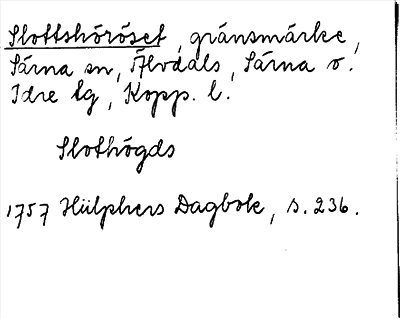 Slottshöröset, gränsmärke,
Särna sn, Älvdals, Särna o.
Idre tg, Kopp. l.
Slothögds
1757 Hülphers Dagbok, s. 236.